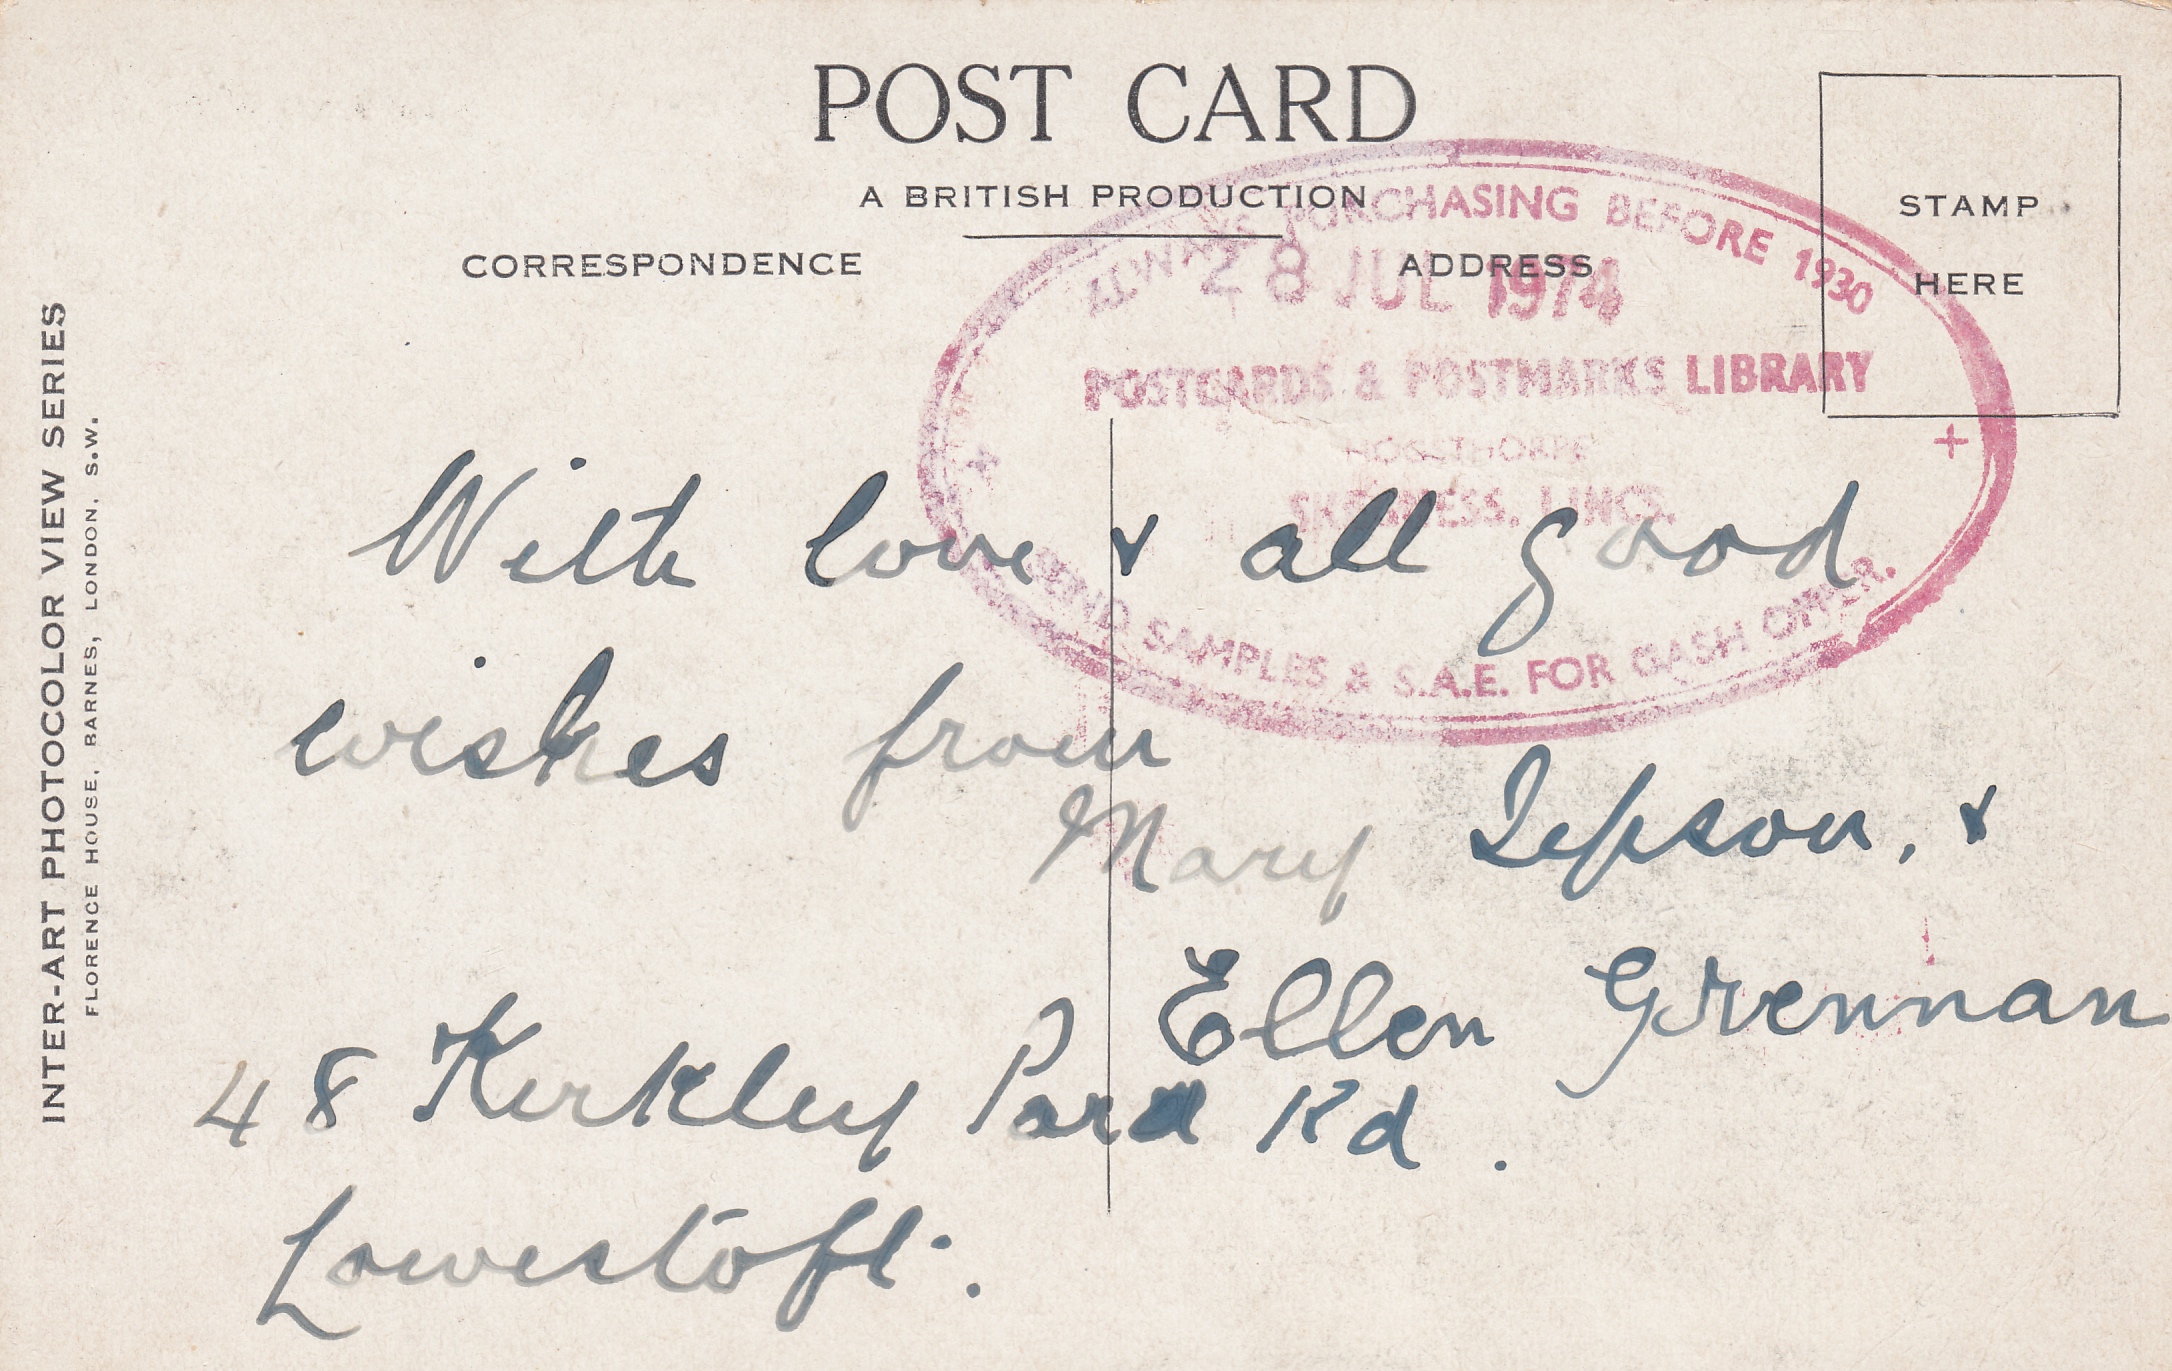 POST CARD
A BRITISH PRODUCTION
CORRESPONDENCE
ADDRESS
STAMP
HERE
INTER-ART PHOTOCOLOR VIEW SERIES
FLORENCE HOUSE, BARNES, LONDON, S.W.
ALWAYS PURCHASING BEFORE 1930
28 JUL 1974
POSTCARDS & POSTMARKS LIBRARY
HOGSTHORPE
SKEGNESS, LINCS.
SEND SAMPLES & S.A.E. FOR CASH OFFER.
With love & all good
wishes from
Mary Jepson, &
Ellen Grennan
48 Kirkley Park Rd.
Lowestoft.